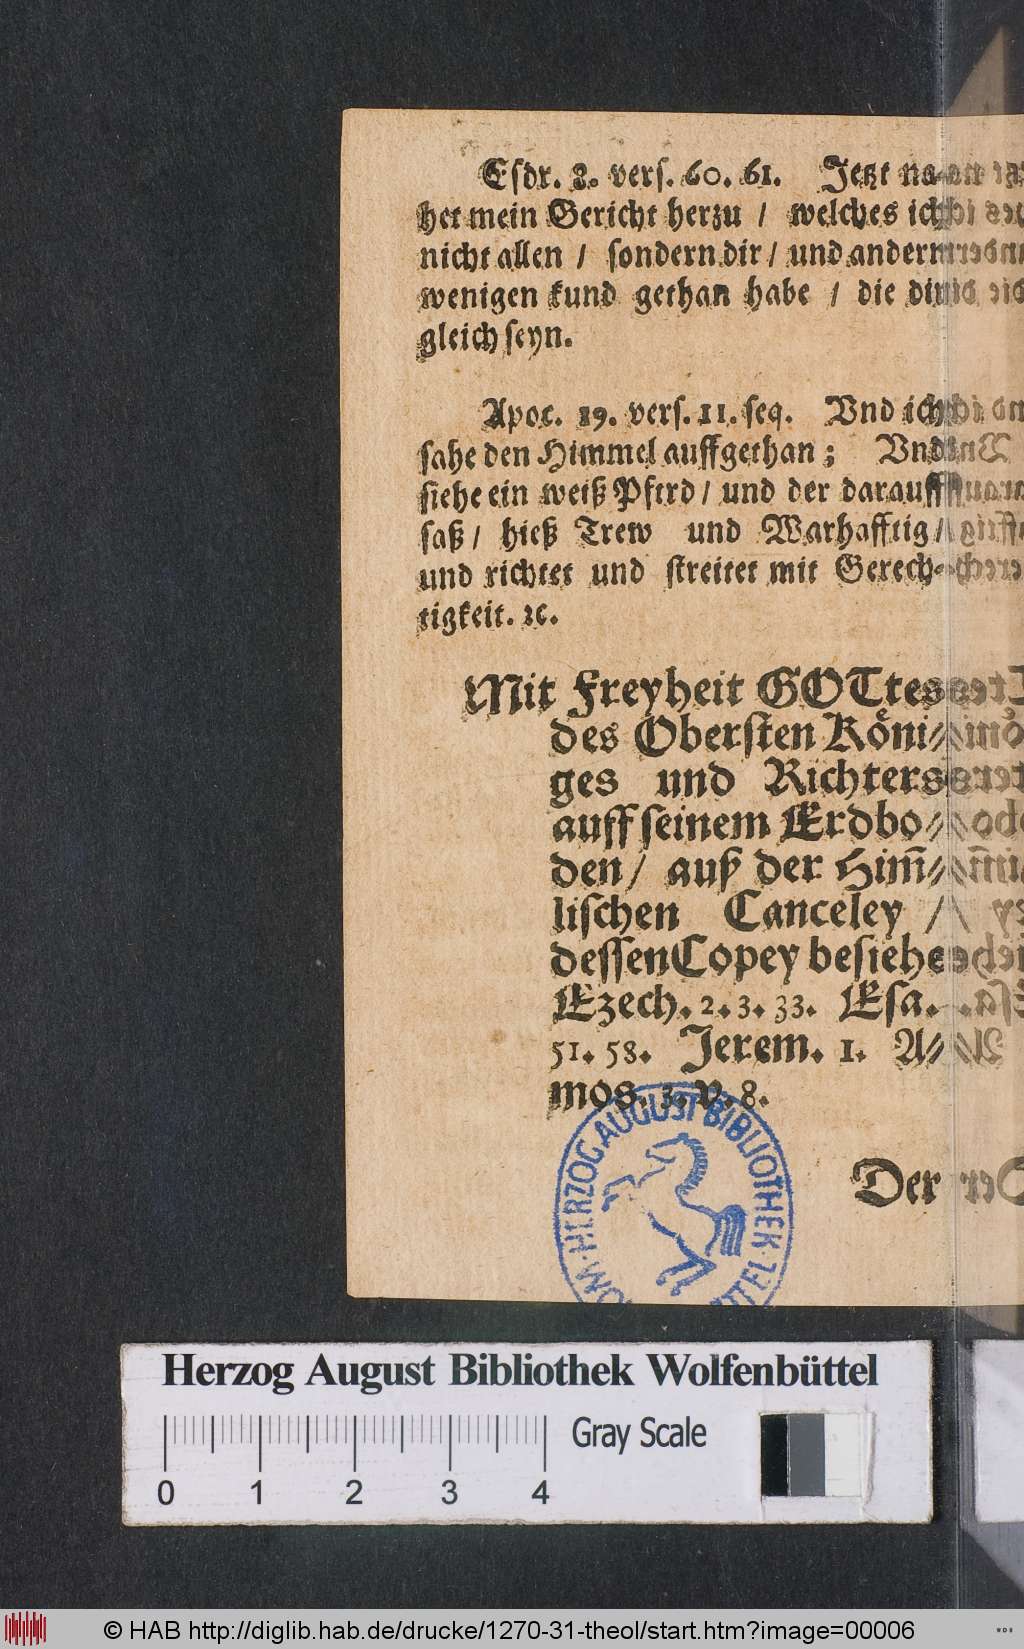 Esdr. 8. vers. 60. 61. Jetzt na-
het mein Gericht herzu / welches ich
nicht allen / sondern dir / und andern
wenigen kund gethan habe / die dir
gleich seyn.
Apoc. 19. vers. 11. seq. Vnd ich
sahe den Himmel auffgethan; Vnd
siehe ein weiß Pferd / und der darauff
saß / hieß Trew und Warhafftig /
und richtet und streitet mit Gerech-
tigkeit. ꝛc.
Mit Freyheit GOTtes
des Obersten Köni⸗
ges und Richters
auff seinem Erdbo⸗
den / auß der Him̄⸗
lischen Canceley /
dessen Copey besiehe
Ezech. 2. 3. 33. Esa.
51. 58. Jerem. 1. A⸗
mos. 3. v. 8.
Der
HERZOG AUGUST BIBLIOTHEK
Herzog August Bibliothek Wolfenbüttel
Gray Scale
0 1 2 3 4
© HAB http://diglib.hab.de/drucke/1270-31-theol/start.htm?image=00006